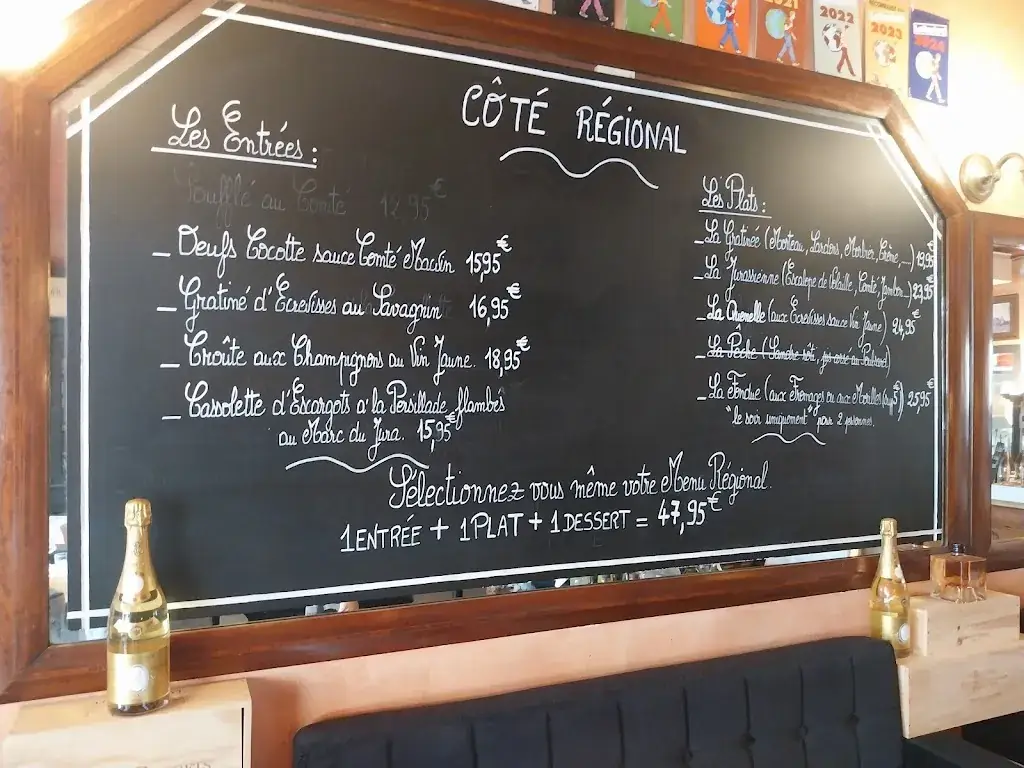 2021
2022
2023
2024
CÔTÉ RÉGIONAL
Les Entrées :
Soufflé au Comté 12,95€
_ Oeufs Cocotte sauce Comté Macvin 15,95€
_ Gratiné d'Ecrevisses au Savagnin 16,95€
_ Croûte aux Champignons au Vin Jaune. 18,95€
_ Cassolette d'Escargots à la Persillade flambés
au Marc du Jura. 15,95€
Les Plats :
_ La Gratinée (Morteau, Lardons, Morbier, Crème, ...) 19,95€
_ La Jurassienne (Escalope de Volaille, Comté, Jambon...) 22,95€
_ La Quenelle (aux Ecrevisses sauce Vin Jaune) 24,95€
_ La Pêche (Sandre rôti, jus corsé au Poulsard)
_ La Fondue (aux Fromages ou aux Morilles (sup 5€)) 25,95€
"le soir uniquement" pour 2 personnes.
Sélectionnez vous même votre Menu Régional.
1 ENTRÉE + 1 PLAT + 1 DESSERT = 47,95€